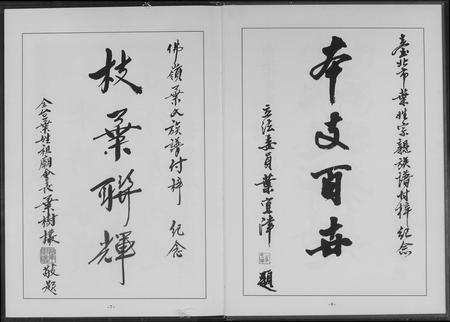 臺北市葉姓宗親族譜付梓紀念
本支百世
立法委員葉宜津 題
-6-
佛嶺葉氏族譜付梓 紀念
枝葉聯輝
全台葉姓祖廟會長葉樹欉 敬題
-7-